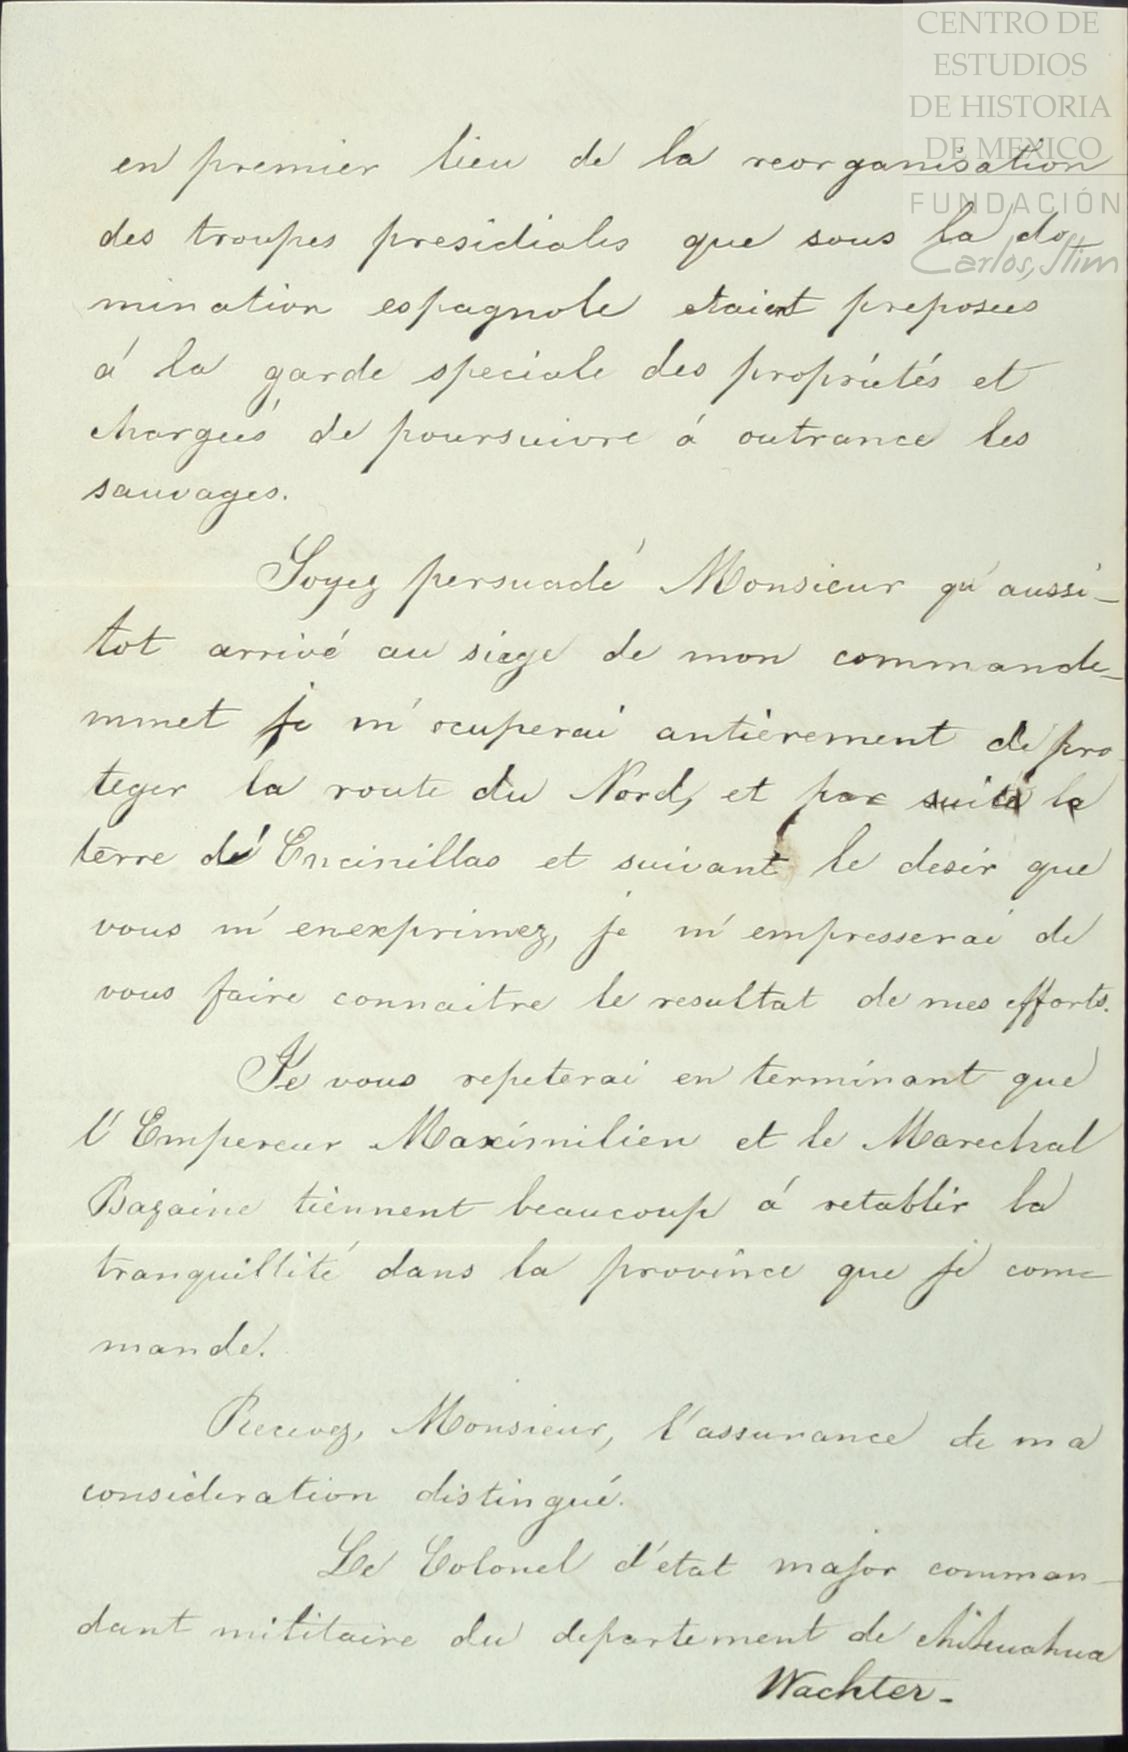 CENTRO DE
ESTUDIOS
DE HISTORIA
DE MEXICO
FUNDACIÓN
Carlos Slim
en premier lieu de la reorganisation
des troupes presidiales que sous la do
mination espagnole etaient preposees
á la garde speciale des propriétés et
chargées de poursuivre á outrance les
sauvages.
Soyez persuadé Monsieur qu'aussi-
tot arrivé au siege de mon commande-
mmet je m'ocuperai antièrement de pro
teger la route du Nord, et par suite la
terre de Encinillas et suivant le desir que
vous m'enexprimez, je m'empresserai de
vous faire connaitre le resultat de mes efforts.
Je vous repeterai en terminant que
l'Empereur Maximilien et le Marechal
Bazaine tiennent beaucoup á retablir la
tranquillité dans la province que je com-
mande.
Recevez, Monsieur, l'assurance de ma
consideration distingué.
Le Colonel d'etat major comman-
dant militaire du departement de chihuahua
Wachter-